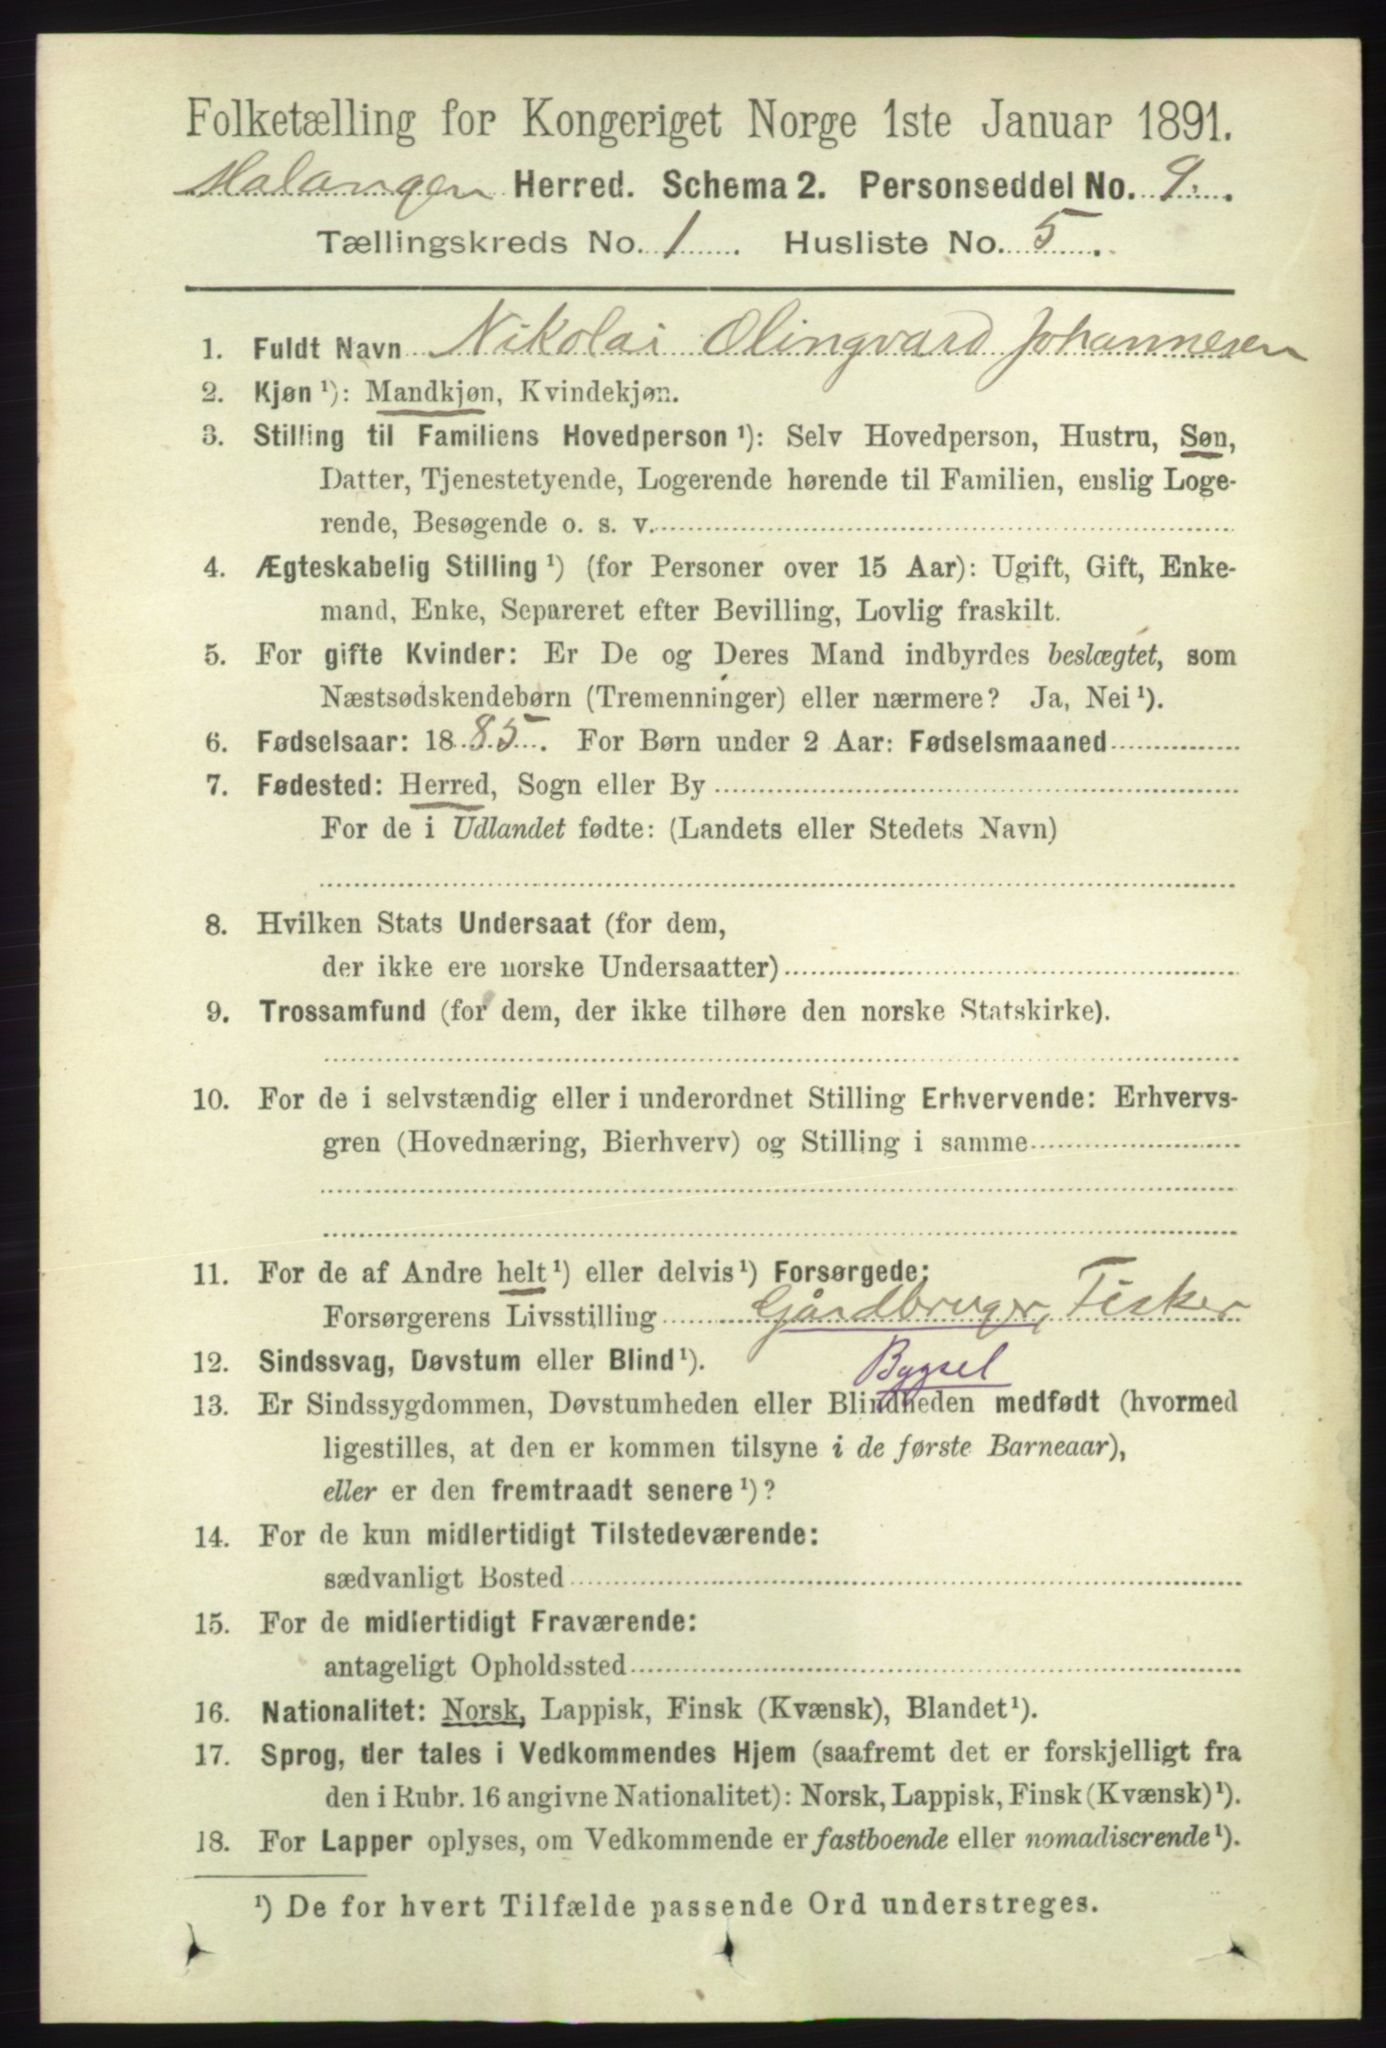 Folketælling for Kongeriget Norge 1ste Januar 1891.
Malangen Herred. Schema 2. Personseddel No. 9.
Tællingskreds No. 1. Husliste No. 5.
1. Fuldt Navn Nikolai Olingvard Johannesen
2. Kjøn ¹): Mandkjøn, Kvindekjøn.
3. Stilling til Familiens Hovedperson ¹): Selv Hovedperson, Hustru, Søn,
Datter, Tjenestetyende, Logerende hørende til Familien, enslig Loge-
rende, Besøgende o. s. v.
4. Ægteskabelig Stilling ¹) (for Personer over 15 Aar): Ugift, Gift, Enke-
mand, Enke, Separeret efter Bevilling, Lovlig fraskilt.
5. For gifte Kvinder: Er De og Deres Mand indbyrdes beslægtet, som
Næstsødskendebørn (Tremenninger) eller nærmere? Ja, Nei ¹).
6. Fødselsaar: 1885. For Børn under 2 Aar: Fødselsmaaned
7. Fødested: Herred, Sogn eller By
For de i Udlandet fødte: (Landets eller Stedets Navn)
8. Hvilken Stats Undersaat (for dem,
der ikke ere norske Undersaatter)
9. Trossamfund (for dem, der ikke tilhøre den norske Statskirke).
10. For de i selvstændig eller i underordnet Stilling Erhvervende: Erhvervs-
gren (Hovednæring, Bierhverv) og Stilling i samme
11. For de af Andre helt ¹) eller delvis ¹) Forsørgede:
Forsørgerens Livsstilling Gårdbruger, Fisker
12. Sindssvag, Døvstum eller Blind ¹). Bygsel
13. Er Sindssygdommen, Døvstumheden eller Blindheden medfødt (hvormed
ligestilles, at den er kommen tilsyne i de første Barneaar),
eller er den fremtraadt senere ¹)?
14. For de kun midlertidigt Tilstedeværende:
sædvanligt Bosted
15. For de midlertidigt Fraværende:
antageligt Opholdssted
16. Nationalitet: Norsk, Lappisk, Finsk (Kvænsk), Blandet ¹).
17. Sprog, der tales i Vedkommendes Hjem (saafremt det er forskjelligt fra
den i Rubr. 16 angivne Nationalitet): Norsk, Lappisk, Finsk (Kvænsk) ¹).
18. For Lapper oplyses, om Vedkommende er fastboende eller nomadiserende ¹).
¹) De for hvert Tilfælde passende Ord understreges.